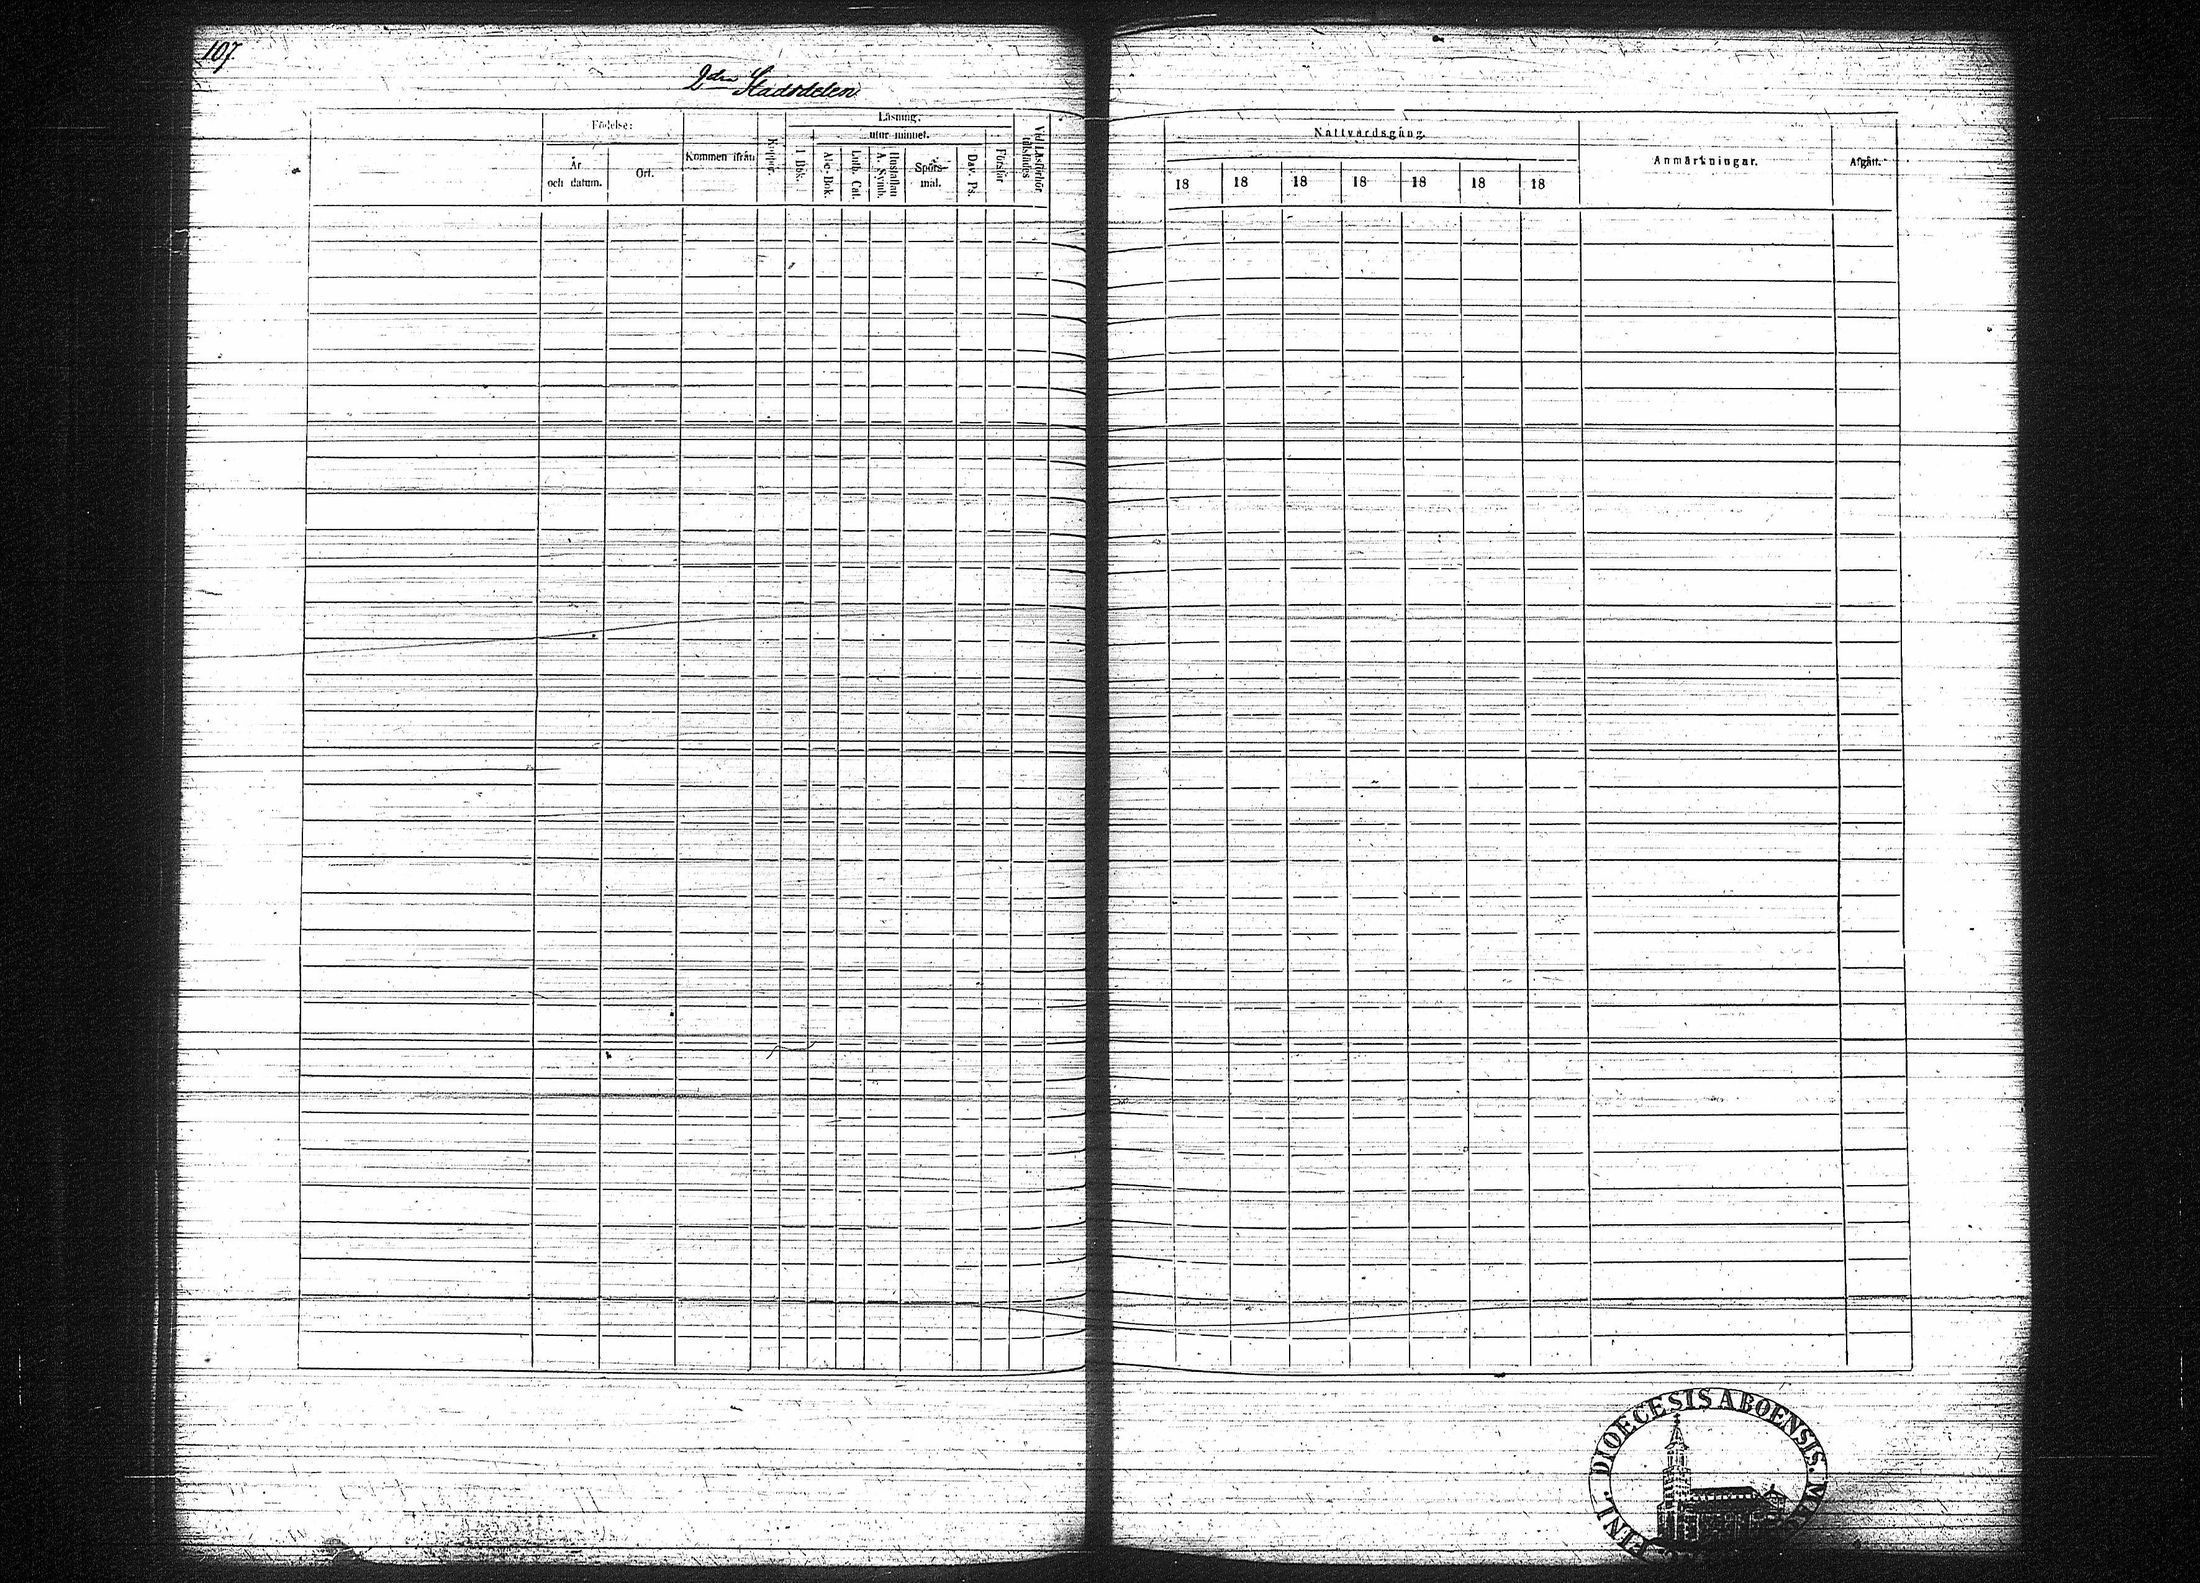 107.
2dra Stadsdelen.
Födelse:
År och datum.
Ort.
Kommen ifrån
Koppor.
Läsning;
utur minnet.
I Bok.
Abc-Bok
Luth. Cat.
Hustaflan A. Symb.
Spörs-mål.
Dav. Ps.
Förstår
Vid Läsförhör tillstädes
Nattvardsgång.
18 18 18 18 18 18 18
Anmärkningar.
Afgått.
DIOECESIS ABOENSIS.
FINL.